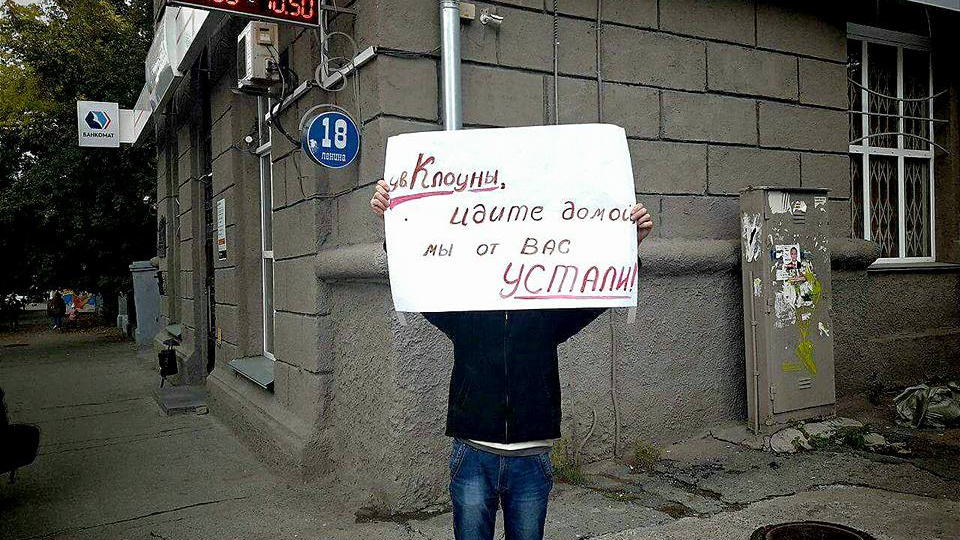 10.50
БАНКОМАТ
18
ленина
ув Клоуны,
идите домой
мы от ВАС
УСТАЛИ!